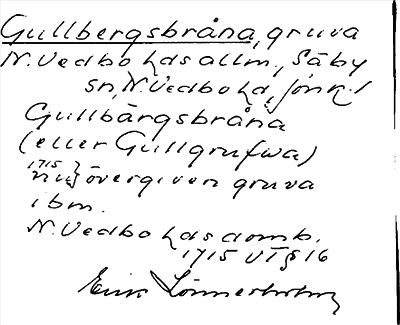 Gullbergsbråna, gruva
N. Vedbo hds allm., Säby
sn, N. Vedbo hd, Jönk. l
Gullbärgsbråna
(eller Gullgrufwa)
1715
nu} övergiven gruva
ibm.
N. Vedbo hds domb.
1715 VT § 16
Erik